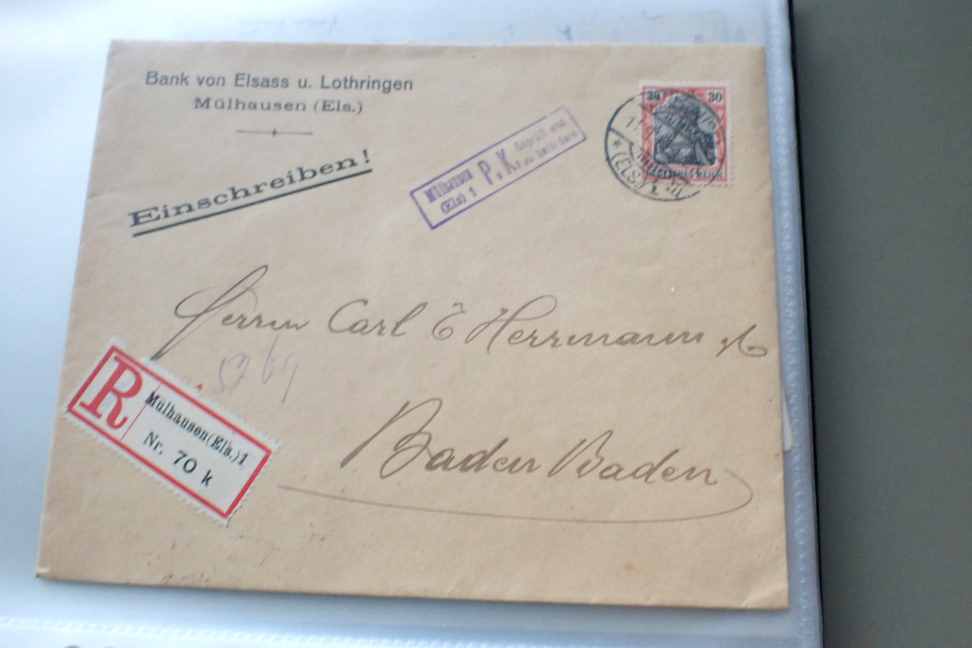 Bank von Elsass u. Lothringen
Mülhausen (Els.)
Einschreiben!
Mülhausen
(Els) 1
P.K.
30 30
(ELS.)
Herrn Carl E Herrmann
Baden Baden
R
Mülhausen (Els.) 1
Nr. 70 k